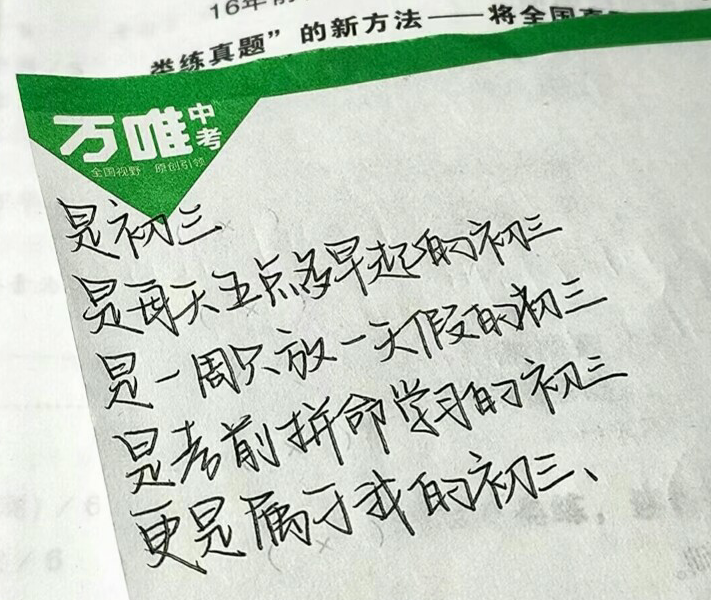 16年前
类练真题”的新方法——将全国真题
万唯中考
全国视野 原创引领
是初三
是每天五点多早起的初三
是一周只放一天假的初三
是考前拼命学习的初三
更是属于我的初三、